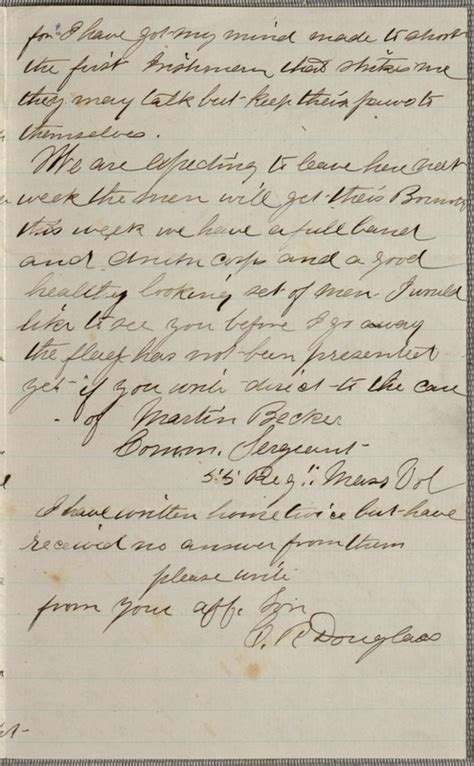 for I have got my mind made to shoot
the first Irishmen that strikes me
they may talk but keep their paws to
themselves.
We are expecting to leave here next
week the men will get their Bounty
this week we have a full band
and drum corps and a good
healthy looking set of men. I would
like to see you before I go away
the flag has not been presented
yet if you write direct to the care
of Martin Becker
Comm. Sergeant
55 Reg't Mass Vol
I have written home twice but have
received no answer from them
please write
from your aff. Son
C. R. Douglass